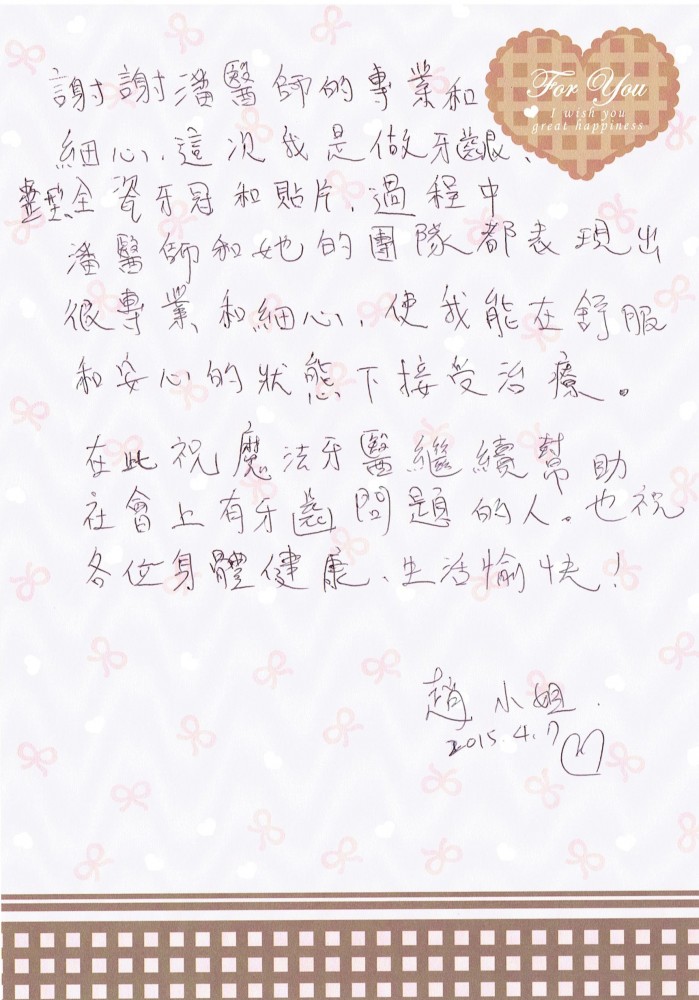 For You
I wish you
great happiness
謝謝潘醫師的專業和
細心,這次我是做牙齦、
整型全瓷牙冠和貼片,過程中
潘醫師和她的團隊都表現出
很專業和細心,使我能在舒服
和安心的狀態下接受治療。
在此祝魔法牙醫繼續幫助
社會上有牙齒問題的人。也祝
各位身體健康、生活愉快!
趙小姐.
2015.4.7